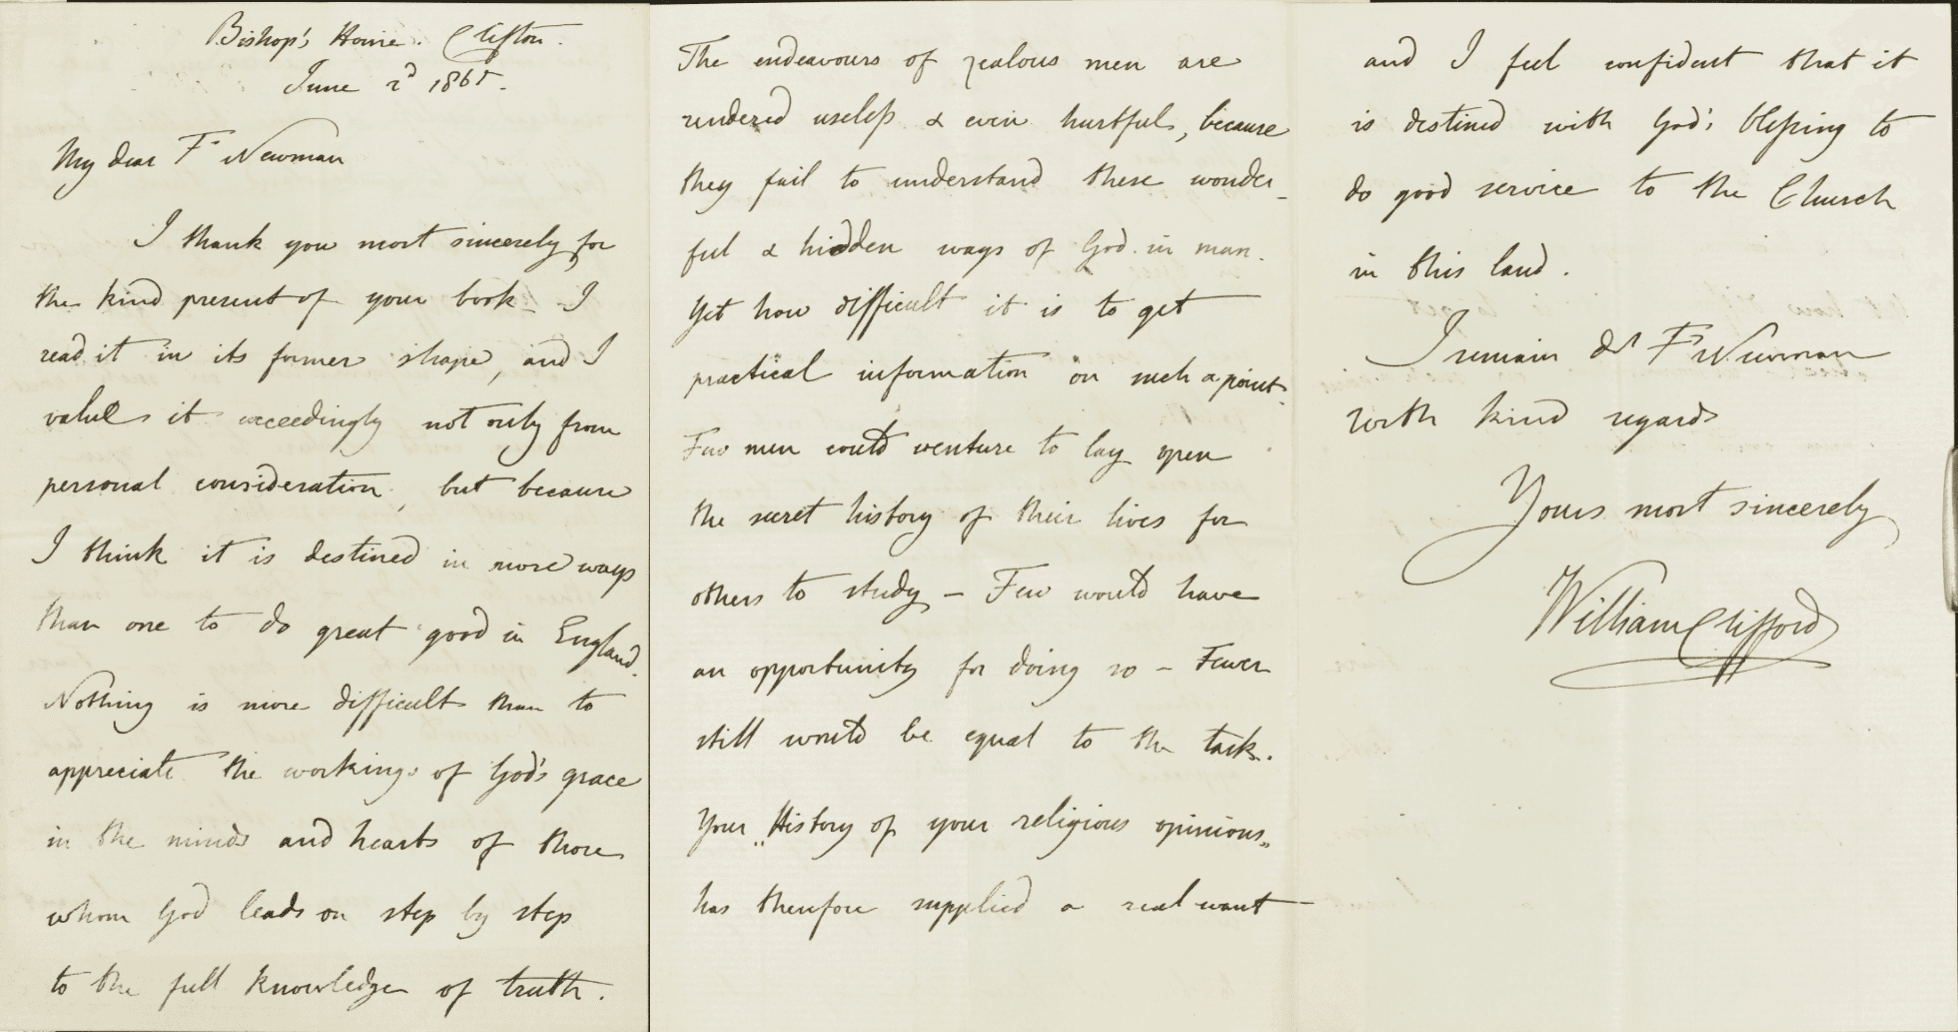 Bishop's House. Clifton.
June 2d 1865.
My dear Fr Newman
I thank you most sincerely for
the kind present of your book - I
read it in its former shape, and I
value it exceedingly not only from
personal consideration, but because
I think it is destined in more ways
than one to do great good in England.
Nothing is more difficult than to
appreciate the workings of God's grace
in the minds and hearts of those
whom God leads on step by step
to the full knowledge of truth.
The endeavours of zealous men are
rendered useless & even hurtful, because
they fail to understand these wonder-
ful & hidden ways of God in man.
Yet how difficult it is to get
practical information on such a point.
Few men could venture to lay open
the secret history of their lives for
others to study - Few would have
an opportunity for doing so - Fewer
still would be equal to the task.
Your „History of your religious opinions„
has therefore supplied a real want
and I feel confident that it
is destined with God's blessing to
do good service to the Church
in this land.
I remain dr Fr Newman
with kind regards
Yours most sincerely
William Clifford